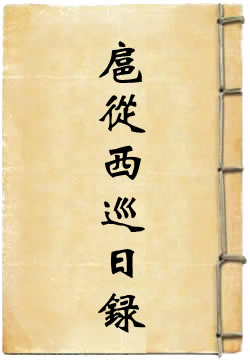 扈從西巡日録